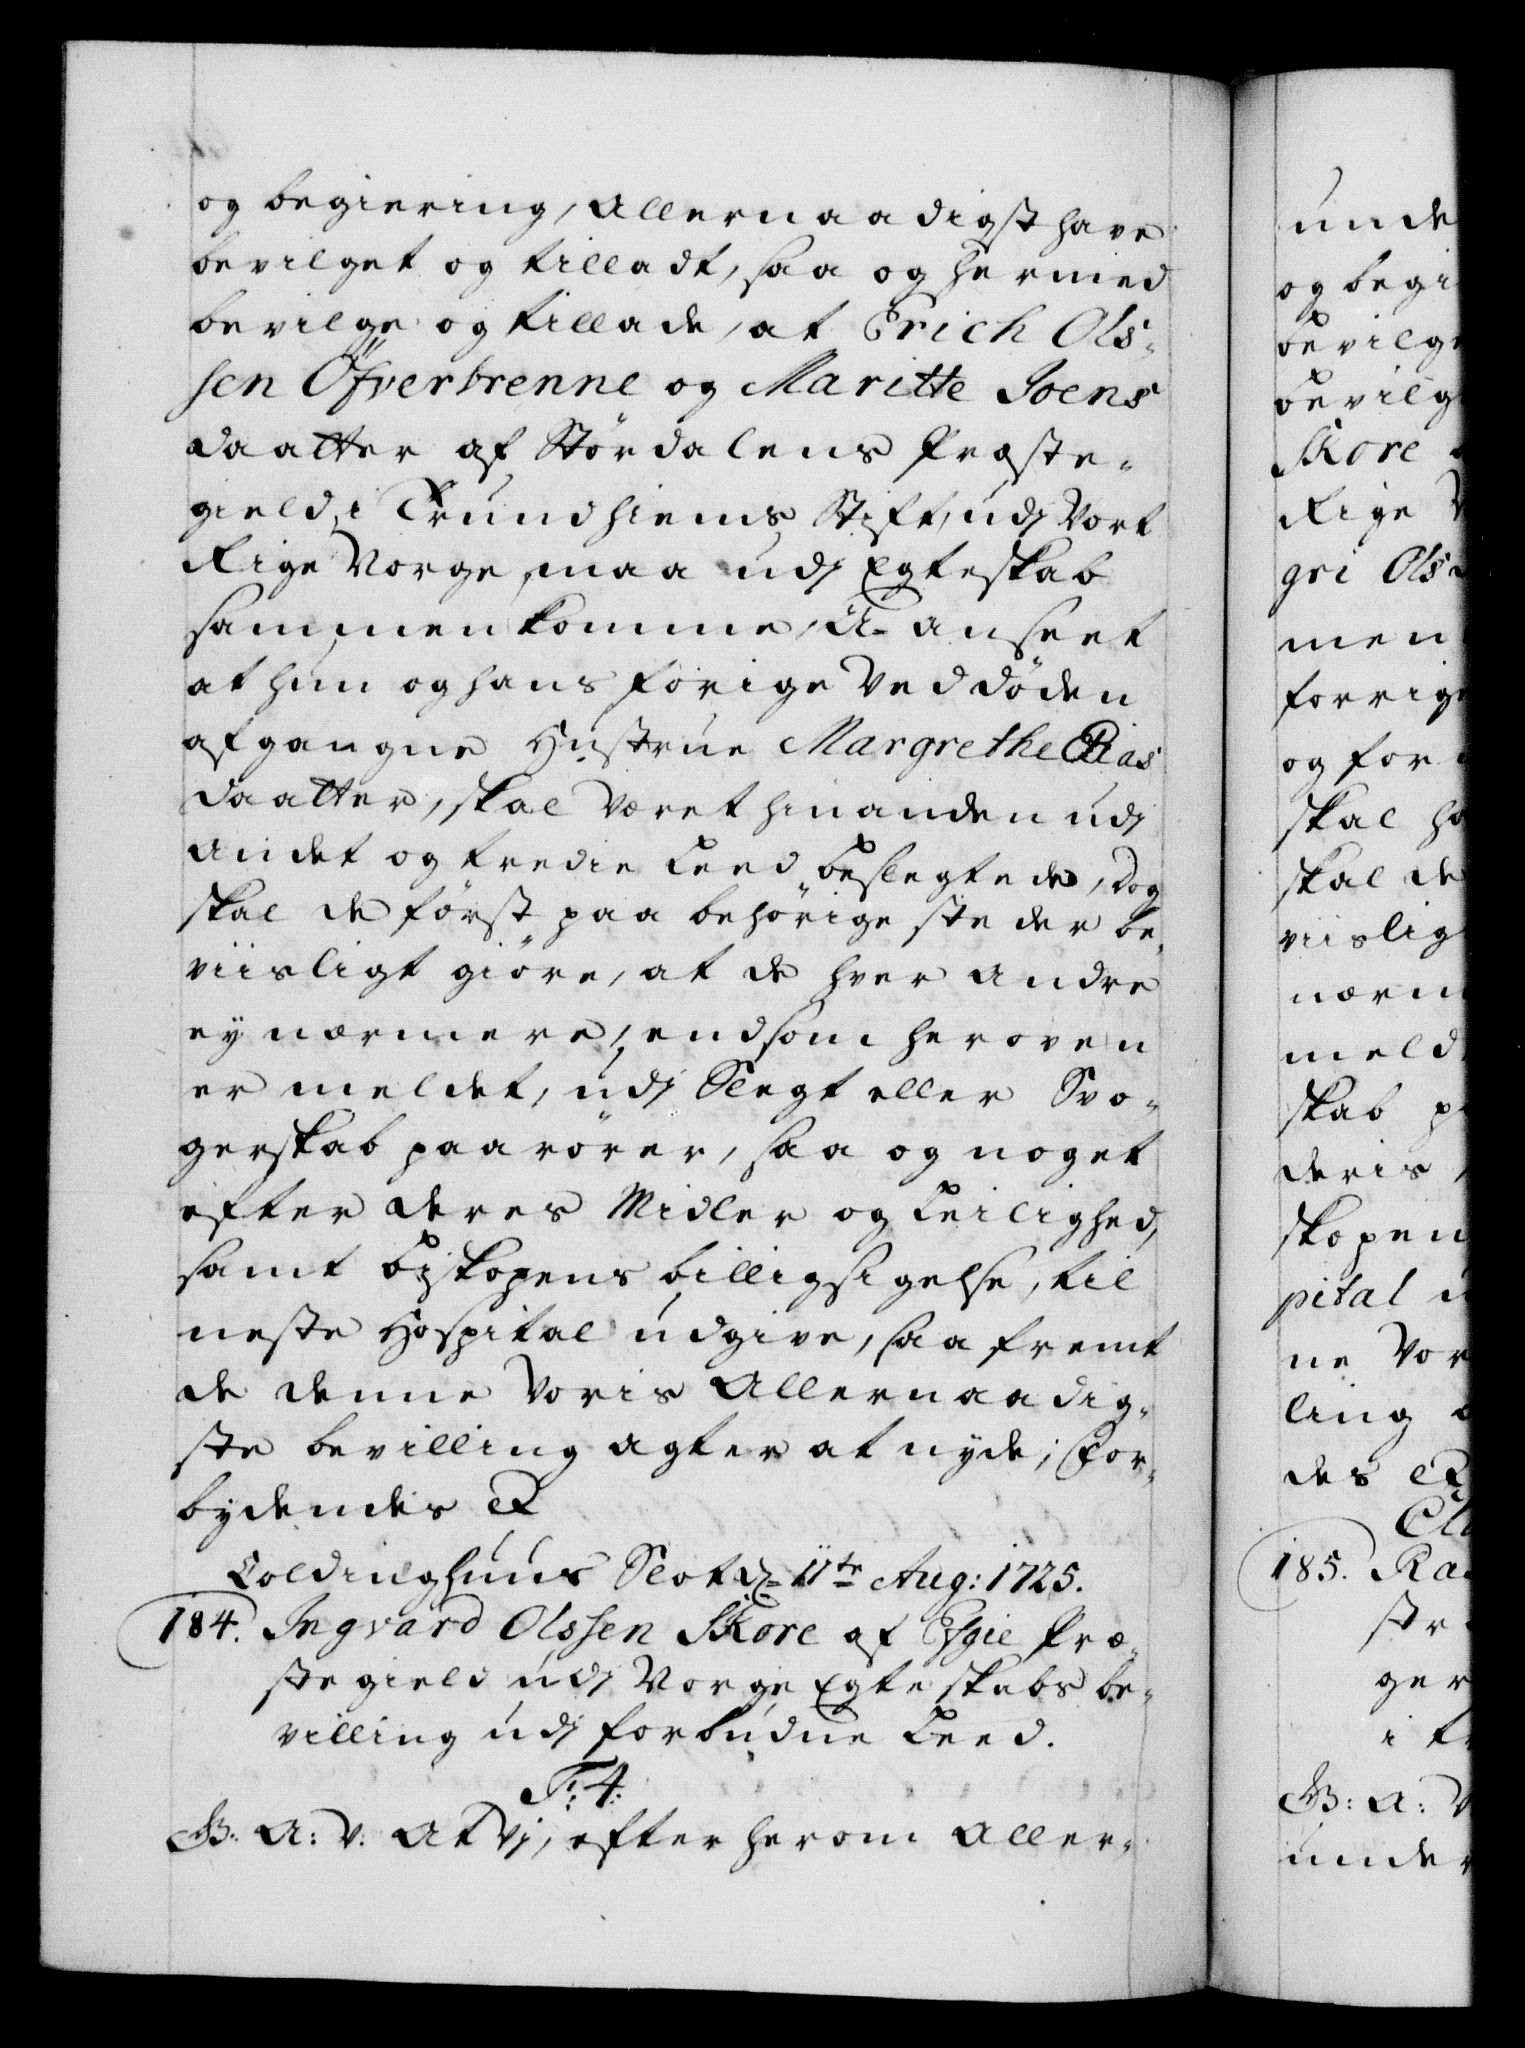 og begiering, Allernaadigst have
bevilget og tilladt, saa og hermed
bevilge og tillade, at Erich Ols-
sen Öfverbrenne og Maritte Joens
daatter af Stördalens Præste-
gield i Trundhiems Stift, udj Vort
Rige Norge, maa udj Egteskab
sammenkomme, U-anseet
at hun og hans forige ved döden
afgangne Hustrue Margrethe Elias
daatter, skal været hinanden udj
andet og tredie Leed beslegtede, dog
skal de först paa behörige steder be-
viisligt giöre, at de hver andre
ey nærmere, end som heroven
er meldet, udj Slegt eller Svo-
gerskab paarörer, saa og noget
efter deres Midler og Leilighed,
samt Biskopens billigsigelse, til
neste Hospital udgive, saa fremt
de denne Voris Allernaadig-
ste bevilling agter at nyde; For-
bydendes etc
Coldinghuus Slot d. 11te Aug: 1725.
184. Ingvard Olssen Skore af Præ-
stegield udj Norge Egteskabs be-
villing udj forbudne Leed.
F: 4:
G: A: V: At Vj, efter herom Aller-
unde
og begi
bevilge
bevilg
Skore
Rige
gri Ols
men
forrige
og for
skal ha
skal de
viislig
nærm
meld
skab p
deris
skopen
pital u
ne Vor
ling
des etc
185. Ra
str
ger
i tr
G: A: V
under